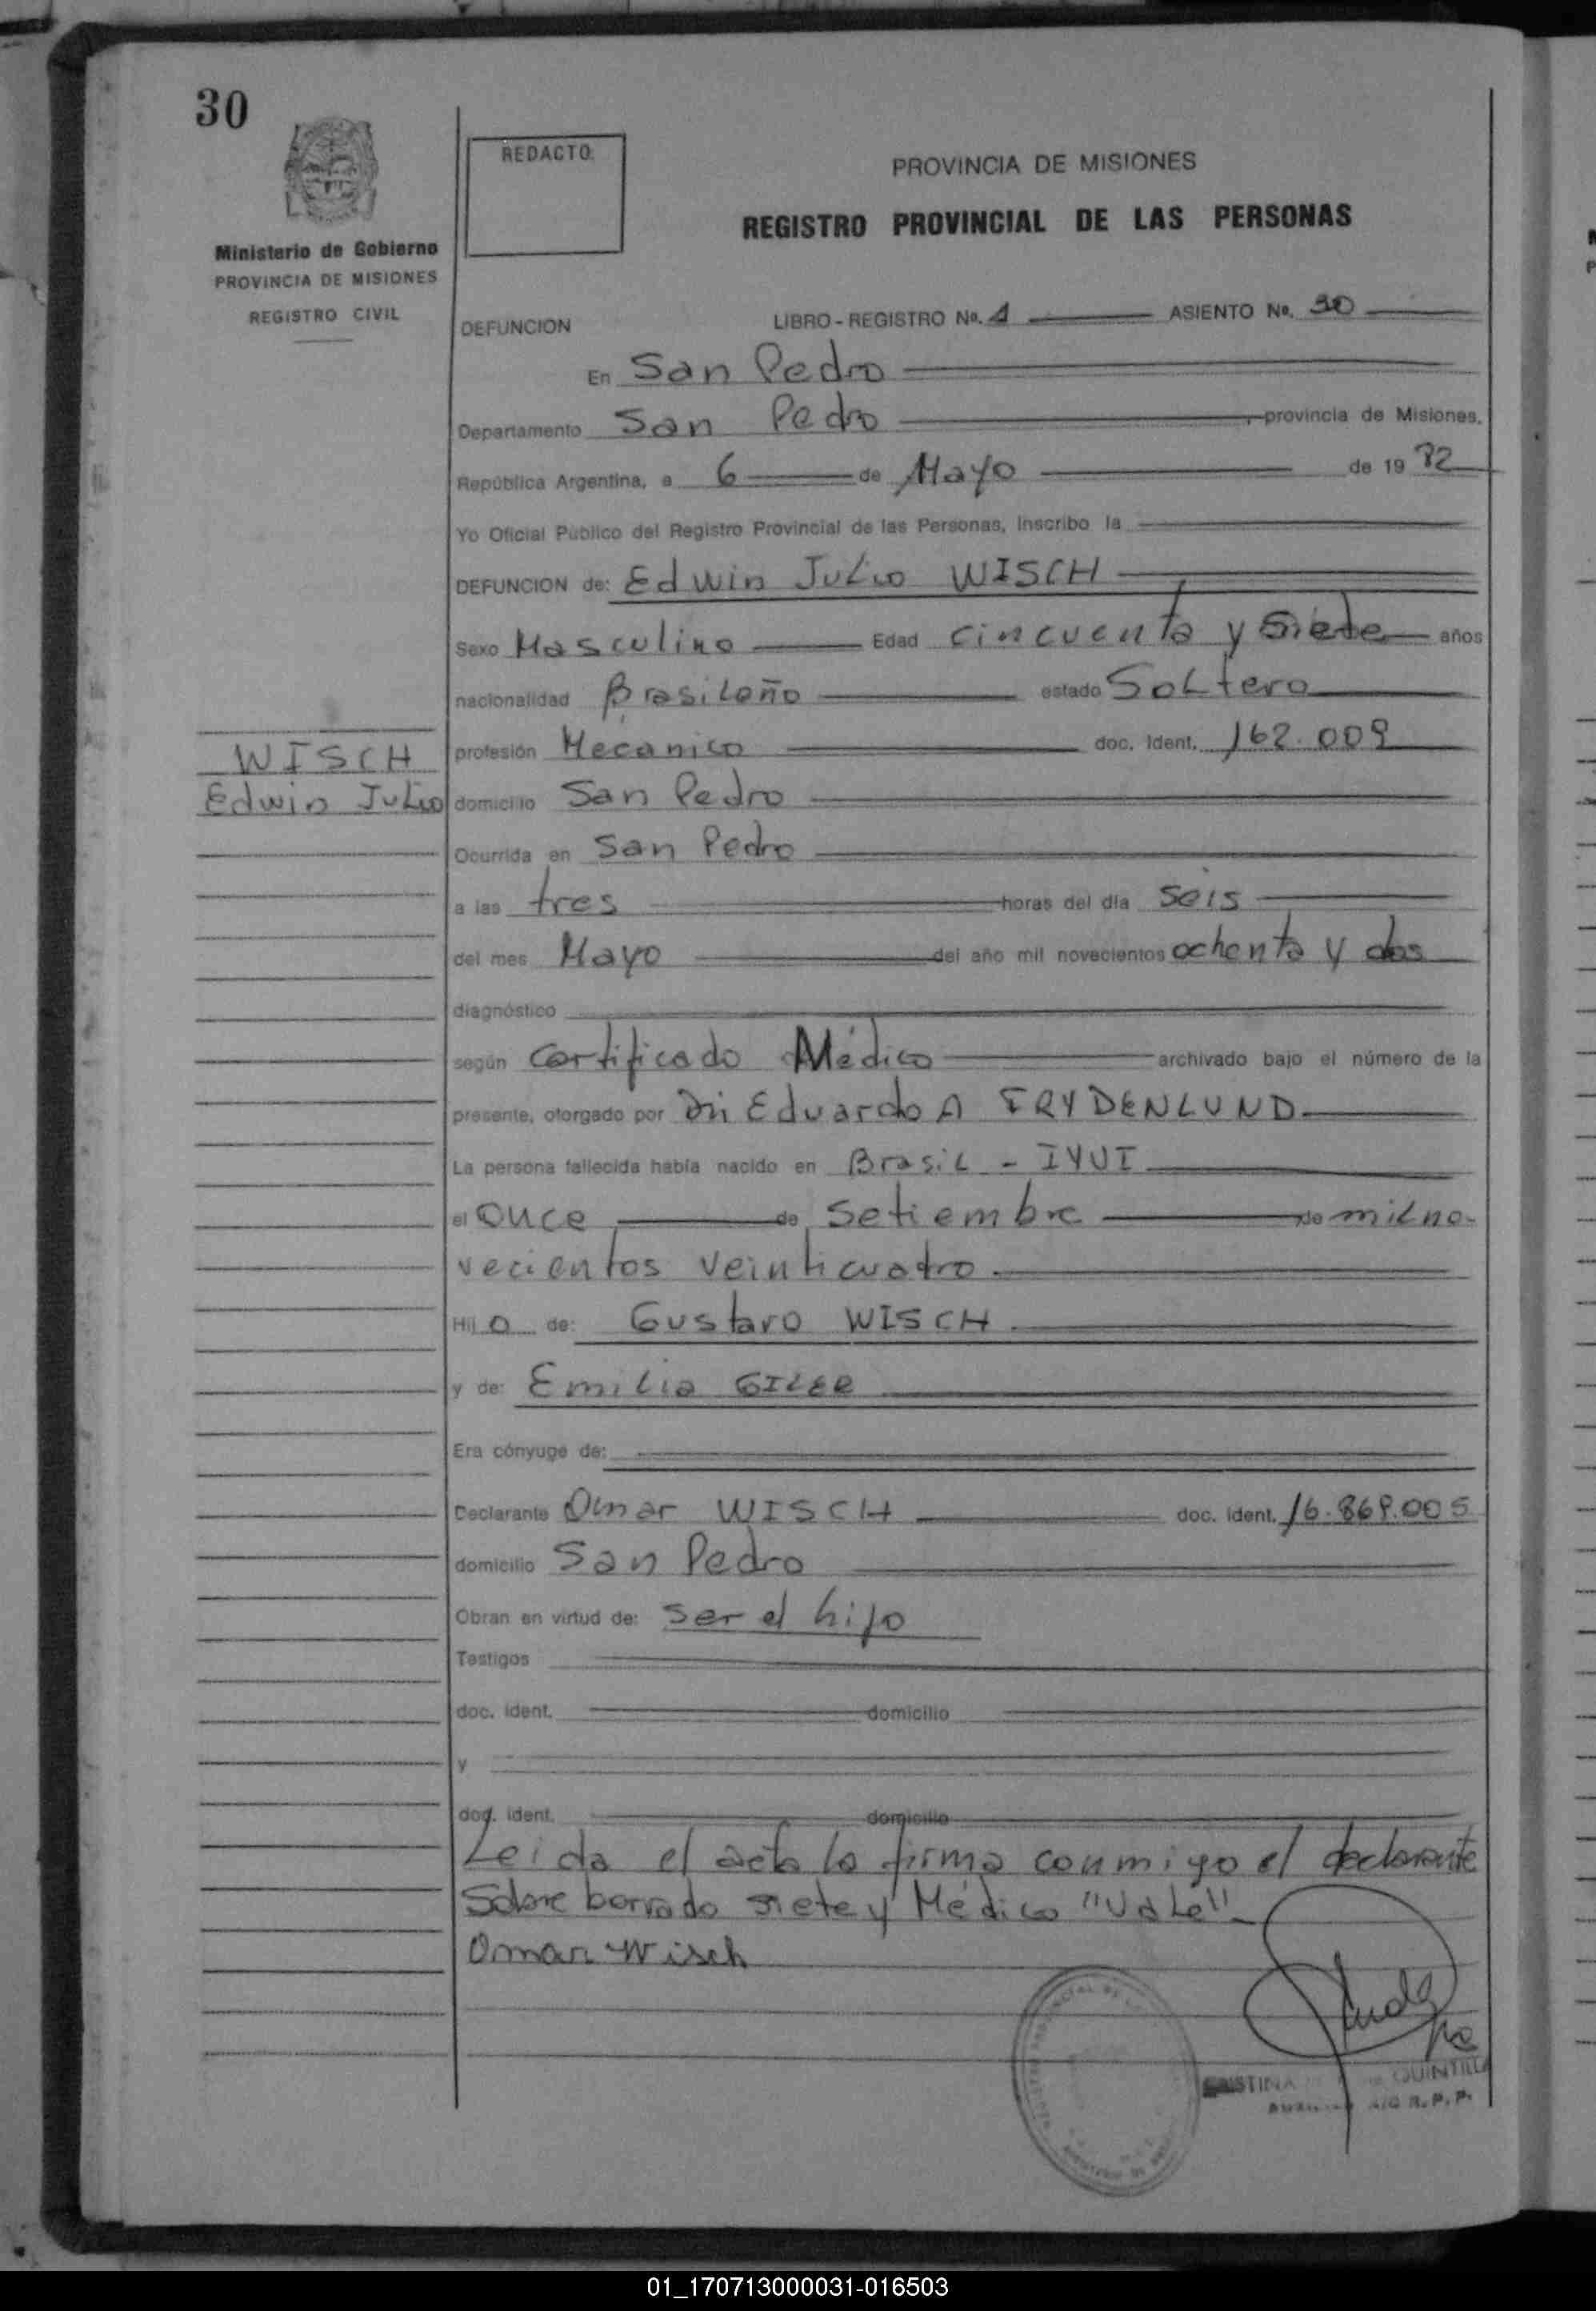 30
REDACTO:
PROVINCIA DE MISIONES
REGISTRO PROVINCIAL DE LAS PERSONAS
Ministerio de Gobierno
PROVINCIA DE MISIONES
REGISTRO CIVIL
DEFUNCION LIBRO-REGISTRO No. 1 ASIENTO No. 30
En San Pedro
Departamento San Pedro, provincia de Misiones.
República Argentina, a 6 de Mayo de 1982
Yo Oficial Público del Registro Provincial de las Personas, inscribo la
DEFUNCION de: Edwin Julio WISCH
Sexo Masculino Edad cincuenta y siete años
nacionalidad Brasileño estado Soltero
WISCH
Edwin Julio
profesión Mecanico doc. ident. 162.009
domicilio San Pedro
Ocurrida en San Pedro
a las tres horas del día seis
del mes Mayo del año mil novecientos ochenta y dos
diagnóstico
según certificado Médico archivado bajo el número de la
presente, otorgado por Dr. Eduardo A FRYDENLUND
La persona fallecida había nacido en Brasil - IYUI
el once de Setiembre de mil no-
vecientos veinticuatro.
Hijo de: Gustavo WISCH
y de: Emilia GILER
Era cónyuge de:
Declarante Omar WISCH doc. ident. 16.869.005
domicilio San Pedro
Obran en virtud de: ser el hijo
Testigos
doc. ident. domicilio
y
doc. ident. domicilio
Leida el acta la firma conmigo el declarante
Sobre borrado siete y Médico "Vale"
Omar Wisch
QUINTILLA
A/C R.P.P.
01_170713000031-016503